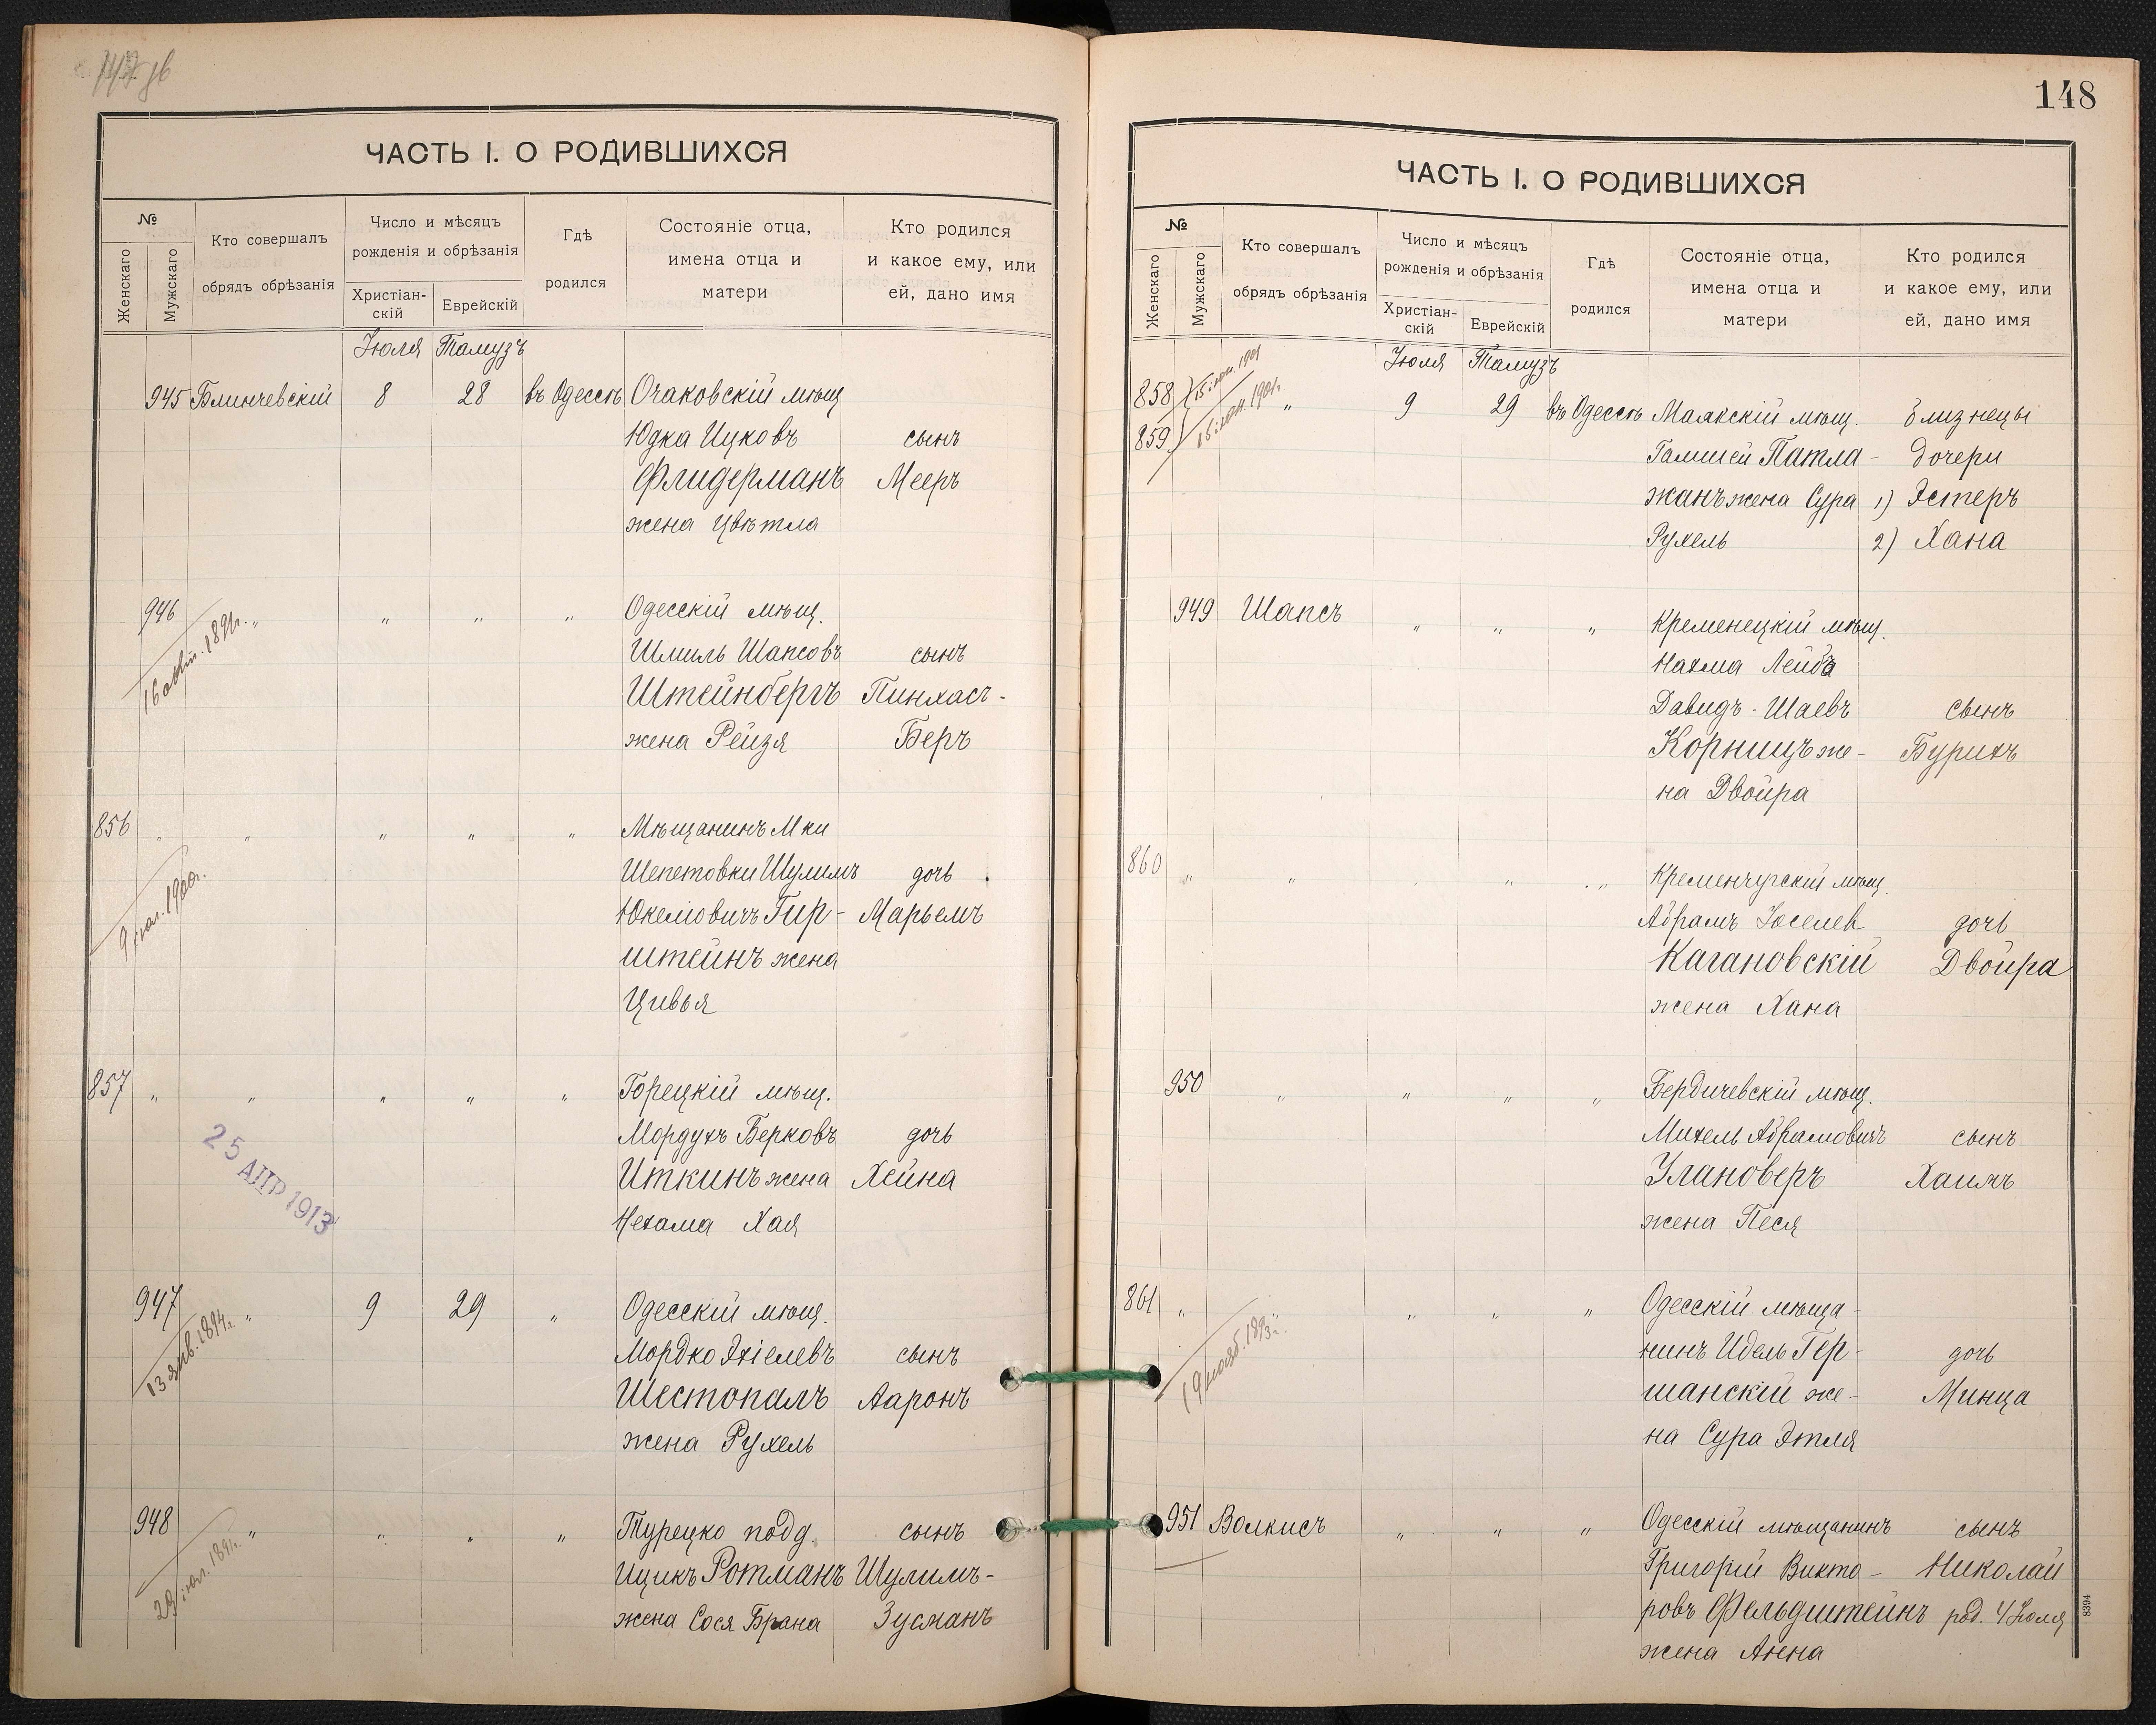 ЧАСТЬ I. О РОДИВШИХСЯ
№
Женскаго
Мужскаго
Кто совершалъ
обрядъ обрѣзанія
Число и мѣсяцъ
рожденія и обрѣзанія
Христіан-
скій
Еврейскій
Гдѣ
родился
Состояніе отца,
имена отца и
матери
Кто родился
и какое ему, или
ей, дано имя
Іюля Тамузъ
945 Блинчевскій 8 28 въ Одессѣ Очаковскій мѣщ
Юдка Ицковъ сынъ
Флидерманъ Мееръ
жена Цвѣтла
946 " " " " Одесскій мѣщ.
16 авг. 1891г.
Шмиль Шапсовъ сынъ
Штейнбергъ Пинхасъ-
жена Рейзя Беръ
856 " " " " " Мѣщанинъ М ки
9 іюл. 1900г.
Шепетовки Шулимъ дочь
Юкеліовичъ Гир- Марьемъ
штейнъ жена
Цивья
857 " " " " " Горецкій мѣщ.
25 АПР 1913
Мордухъ Берковъ дочь
Иткинъ жена Хейна
Нехама Хая
947 " 9 29 " Одесскій мѣщ.
13 янв. 1894г.
Мордко Эхіелевъ сынъ
Шестопалъ Ааронъ
жена Рухель
948 " " " " Турецко подд. сынъ
Ицикъ Ротманъ Шулимъ-
жена Сося Брана Зусманъ
148
ЧАСТЬ I. О РОДИВШИХСЯ
№
Женскаго
Мужскаго
Кто совершалъ
обрядъ обрѣзанія
Число и мѣсяцъ
рожденія и обрѣзанія
Христіан-
скій
Еврейскій
Гдѣ
родился
Состояніе отца,
имена отца и
матери
Кто родился
и какое ему, или
ей, дано имя
Іюля Тамузъ
858 " 9 29 въ Одессѣ Маякскій мѣщ. близнецы
859
Патла- дочери
жанъ жена Сура 1) Эстеръ
Рухель 2) Хана
949 Шапсъ " " " Кременецкій мѣщ.
Нахма Лейба
Давидъ-Шаевъ сынъ
Корницъ же- Бурихъ
на Двойра
860 " " " " Кременчугскій мѣщ.
Абрамъ Іоселев дочь
Кагановскій Двойра
жена Хана
950 " " " " Бердичевскій мѣщ.
Михель Абрамовичъ сынъ
Улановеръ Хаимъ
жена Песя
861 " " " " " Одесскій мѣща-
19 нояб. 1893г.
нинъ Идель Гер- дочь
шанскій же- Минца
на Сура Этля
951 Волкисъ " " " Одесскій мѣщанинъ сынъ
Григорій Викто- Николай
ровъ Фельдштейнъ род. 4 Іюля
жена Анна
8394